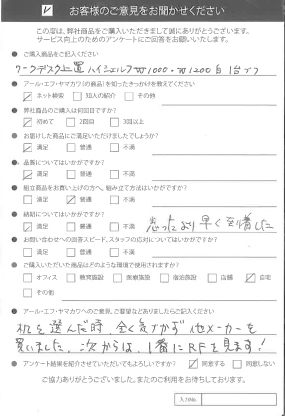 お客様のご意見をお聞かせください
この度は、弊社商品をご購入いただきまして誠にありがとうございます。
サービス向上のためのアンケートにご回答をお願いいたします。
● ご購入商品をご記入ください
ワークデスク上置ハイシェルフ W1000・W1200 白 1台ずつ
● アール・エフ・ヤマカワ(の商品)を知ったきっかけを教えてください
ネット検索 知人の紹介 その他
● 弊社商品のご購入は何回目ですか?
初めて 2回目 3回以上
● お届けした商品にご満足いただけましたでしょうか?
満足 普通 不満
● 品質についてはいかがですか?
満足 普通 不満
● 組立商品をお買い上げの方へ、組み立て方法はいかがですか?
満足 普通 不満
● 納期についてはいかがですか?
満足 普通 不満 思ったより早く至着した
● お問い合わせへの回答スピード、スタッフの応対についてはいかがですか?
満足 普通 不満
● ご購入いただいた商品はどのような環境で使用されますか?
オフィス 教育施設 医療施設 宿泊施設 店舗 自宅
その他
● アール・エフ・ヤマカワへのご意見、ご要望などありましたらご記入ください
机を選んだ時 全く気づかず 他メーカーを
買いました。次からは、1番にRFを見ます!
● アンケート結果を紹介させていただいてもよろしいですか? 同意する 同意しない
ご協力ありがとうございました。またのご利用をお待ちしております。